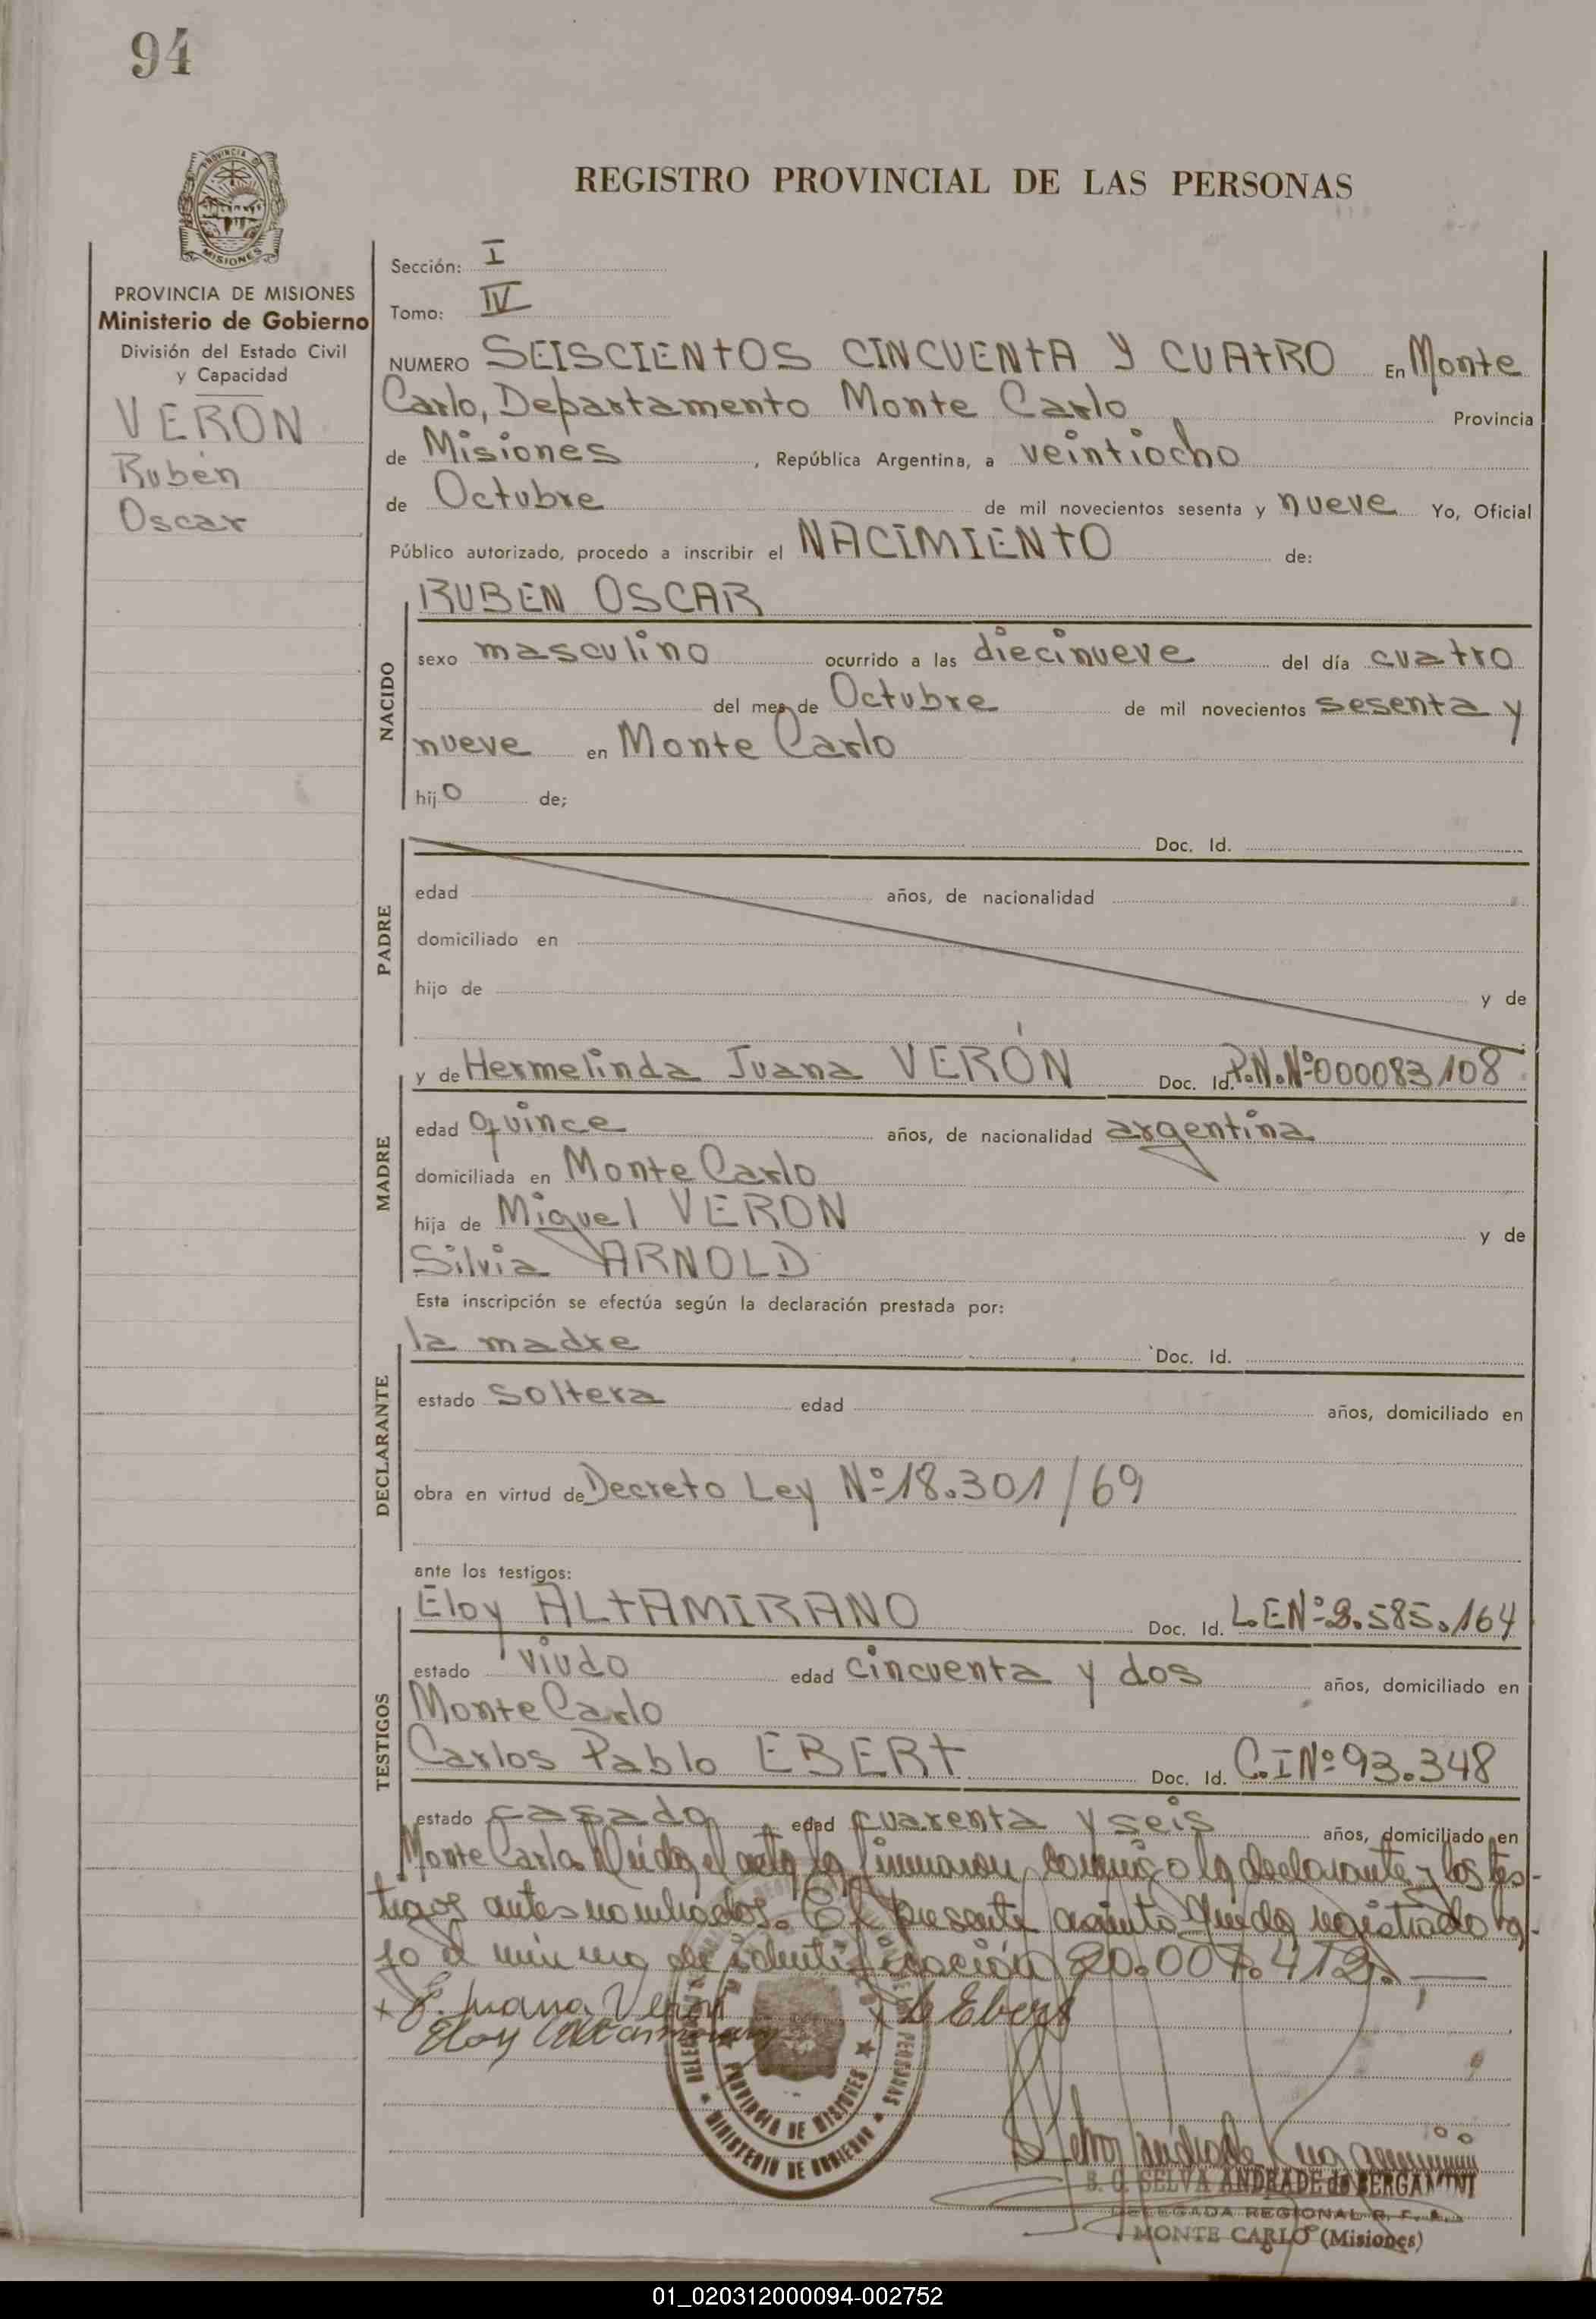 94
REGISTRO PROVINCIAL DE LAS PERSONAS
PROVINCIA DE
MISIONES
PROVINCIA DE MISIONES
Ministerio de Gobierno
División del Estado Civil
y Capacidad
VERÓN
Rubén
Oscar
Sección: I
Tomo: IV
NUMERO SEISCIENTOS CINCUENTA Y CUATRO En Monte
Carlo, Departamento Monte Carlo Provincia
de Misiones, República Argentina, a veintiocho
de Octubre de mil novecientos sesenta y nueve Yo, Oficial
Público autorizado, procedo a inscribir el NACIMIENTO de:
NACIDO
RUBÉN OSCAR
sexo masculino ocurrido a las diecinueve del día cuatro
del mes de Octubre de mil novecientos sesenta y
nueve en Monte Carlo
hijo de;
PADRE
Doc. Id.
edad años, de nacionalidad
domiciliado en
hijo de y de
MADRE
y de Hermelinda Juana VERÓN Doc. Id. P.N.Nº000083108
edad quince años, de nacionalidad argentina
domiciliada en Monte Carlo
hija de Miguel VERON y de
Silvia ARNOLD
Esta inscripción se efectúa según la declaración prestada por:
DECLARANTE
la madre Doc. Id.
estado soltera edad años, domiciliado en
obra en virtud de Decreto Ley Nº18.301/69
ante los testigos:
TESTIGOS
Eloy ALTAMIRANO Doc. Id. L.E.Nº .585.164
estado viudo edad cincuenta y dos años, domiciliado en
Monte Carlo
Carlos Pablo EBERT Doc. Id. C.I Nº93.348
estado casado edad cuarenta y seis años, domiciliado en
Monte Carlo. Leída el acta la firmaron conmigo la declarante y los tes-
tigos antes nombrados. El presente asiento queda registrado ba-
jo el número de identificación 20.007.412.
x Juana Verón x Ebert
Eloy Altamirano
PROVINCIA DE MISIONES
MINISTERIO DE GOBIERNO
PERSONAS
SELVA ANDRADE de BERGAMINI
DELEGADA REGIONAL R. P.
MONTE CARLO (Misiones)
01_020312000094-002752